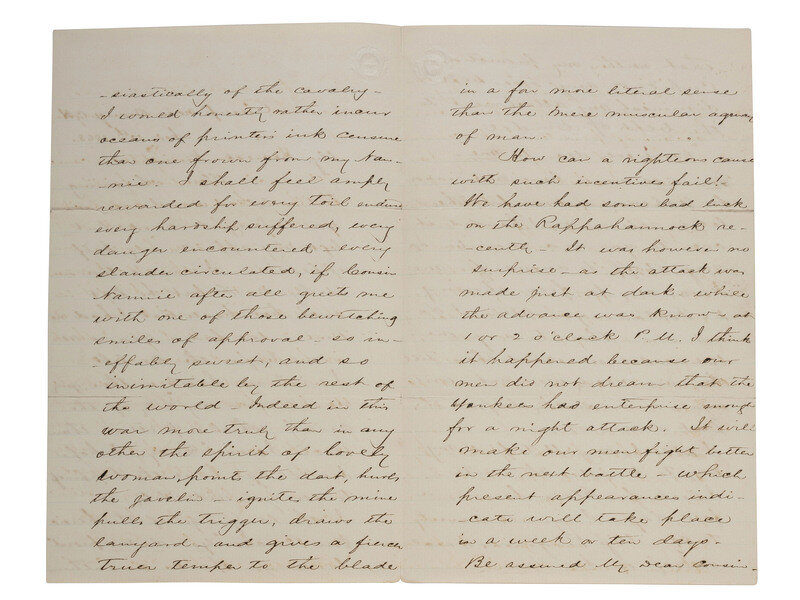 -siastically of the cavalry -
I would honestly rather incur
oceans of printers ink censure
than one frown from my Nan-
-nie. I shall feel amply
rewarded for every toil endured
every hardship suffered, every
danger encountered - every
slander circulated, if Cousin
Nannie after all greets me
with one of those bewitching
smiles of approval - so in-
-effably sweet, and so
inimitable by the rest of
the world - Indeed in this
war more truly than in any
other the spirit of lovely
woman, points the dart, hurls
the javelin - ignites the mine
pulls the trigger, draws the
lanyard - and gives a fiercer
truer temper to the blade
in a far more literal sense
than the mere muscular agency
of man.
How can a righteous cause
with such incentives fail!
We have had some bad luck
on the Rappahannock re-
-cently - It was however no
surprise - as the attack was
made just at dark while
the advance was known at
1 or 2 o'clock P.M. I think
it happened because our
men did not dream that the
Yankees had enterprise enough
for a night attack. It will
make our men fight better
in the next battle - which
present appearances indi-
-cate will take place
in a week or ten days.
Be assured My Dear Cousin -